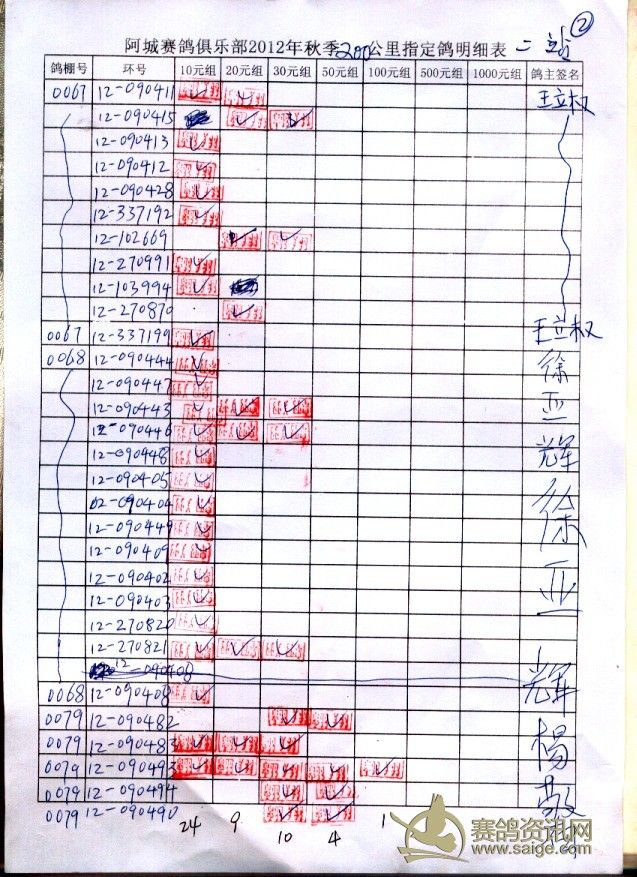 ②
阿城赛鸽俱乐部2012年秋季200公里指定鸽明细表 二站
鸽棚号 环号 10元组 20元组 30元组 50元组 100元组 500元组 1000元组 鸽主签名
0067 12-090411 王立权
12-090415
12-090413
12-090412
12-090428
12-337192
12-102669
12-270991
12-103994
12-270870
0067 12-337199 王立权
0068 12-090444 徐
12-090447
12-090443 亚
12-090446
12-090448 辉
12-090405
12-090404 徐
12-090449
12-090409
12-090402 亚
12-090403
12-270820
12-270821
12-090408 辉
0068 12-090408
0079 12-090482
0079 12-090483 杨
0079 12-090493
0079 12-090494 敬
0079 12-090490
24 9 10 4 1
赛鸽资讯网
www.saige.com